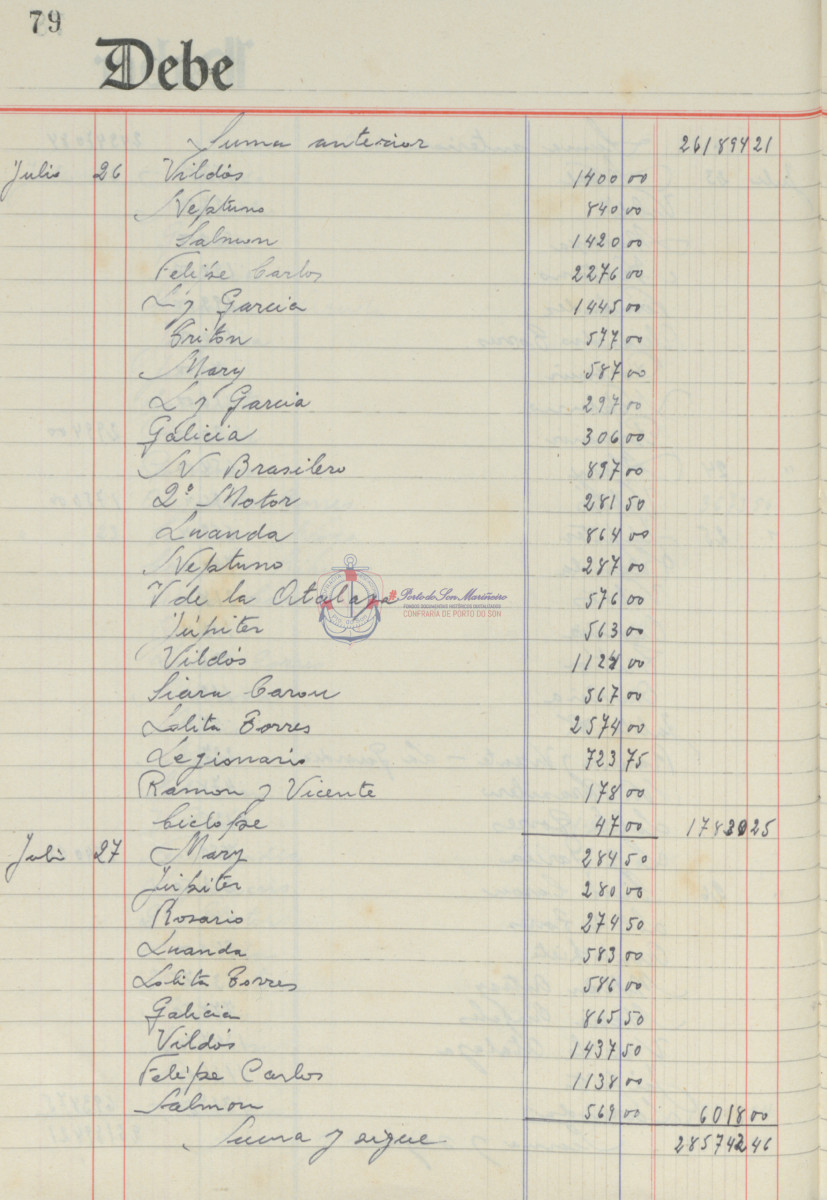 79
Debe
Suma anterior 261894 21
Julio 26 Vildós 1400 00
Neptuno 840 00
Salmon 1420 00
Felipe Carlos 2276 00
L y Garcia 1445 00
Criton 577 00
Mary 587 00
L y Garcia 297 00
Galicia 306 00
N Brasilero 897 00
2º Motor 281 50
Luanda 864 00
Neptuno 287 00
V de la Atalaya 576 00
Júpiter 563 00
Vildós 1124 00
Siara Caron 567 00
Lolita Torres 2574 00
Legionario 723 75
Ramon y Vicente 178 00
Ciclope 47 00 17830 25
Julio 27 Mary 284 50
Júpiter 280 00
Rosario 274 50
Luanda 583 00
Lolita Torres 586 00
Galicia 865 50
Vildós 1437 50
Felipe Carlos 1138 00
Salmon 569 00 6018 00
Suma y sigue 285742 46
#Porto do Son Mariñeiro
FONDOS DOCUMENTAIS HISTÓRICOS DIXITALIZADOS
CONFRARÍA DE PORTO DO SON